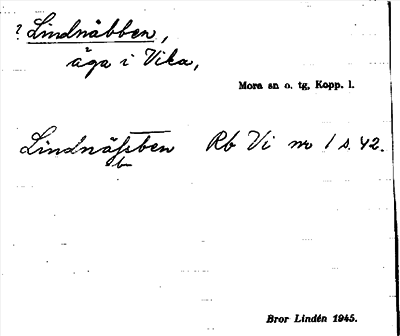 ? Lindnäbben,
äga i Vika,
Mora sn o. tg, Kopp. l.
Rb Vi nr 1 s. 42.
Bror Lindén 1945.